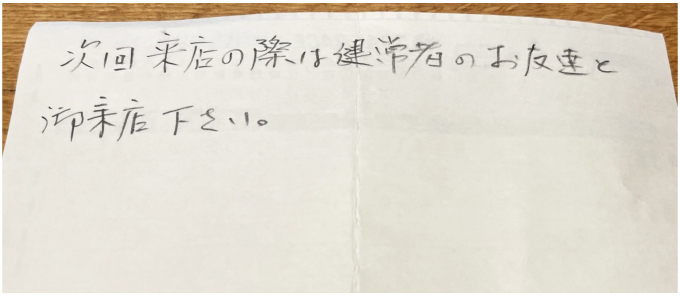 次回来店の際は健常者のお友達と
御来店下さい。